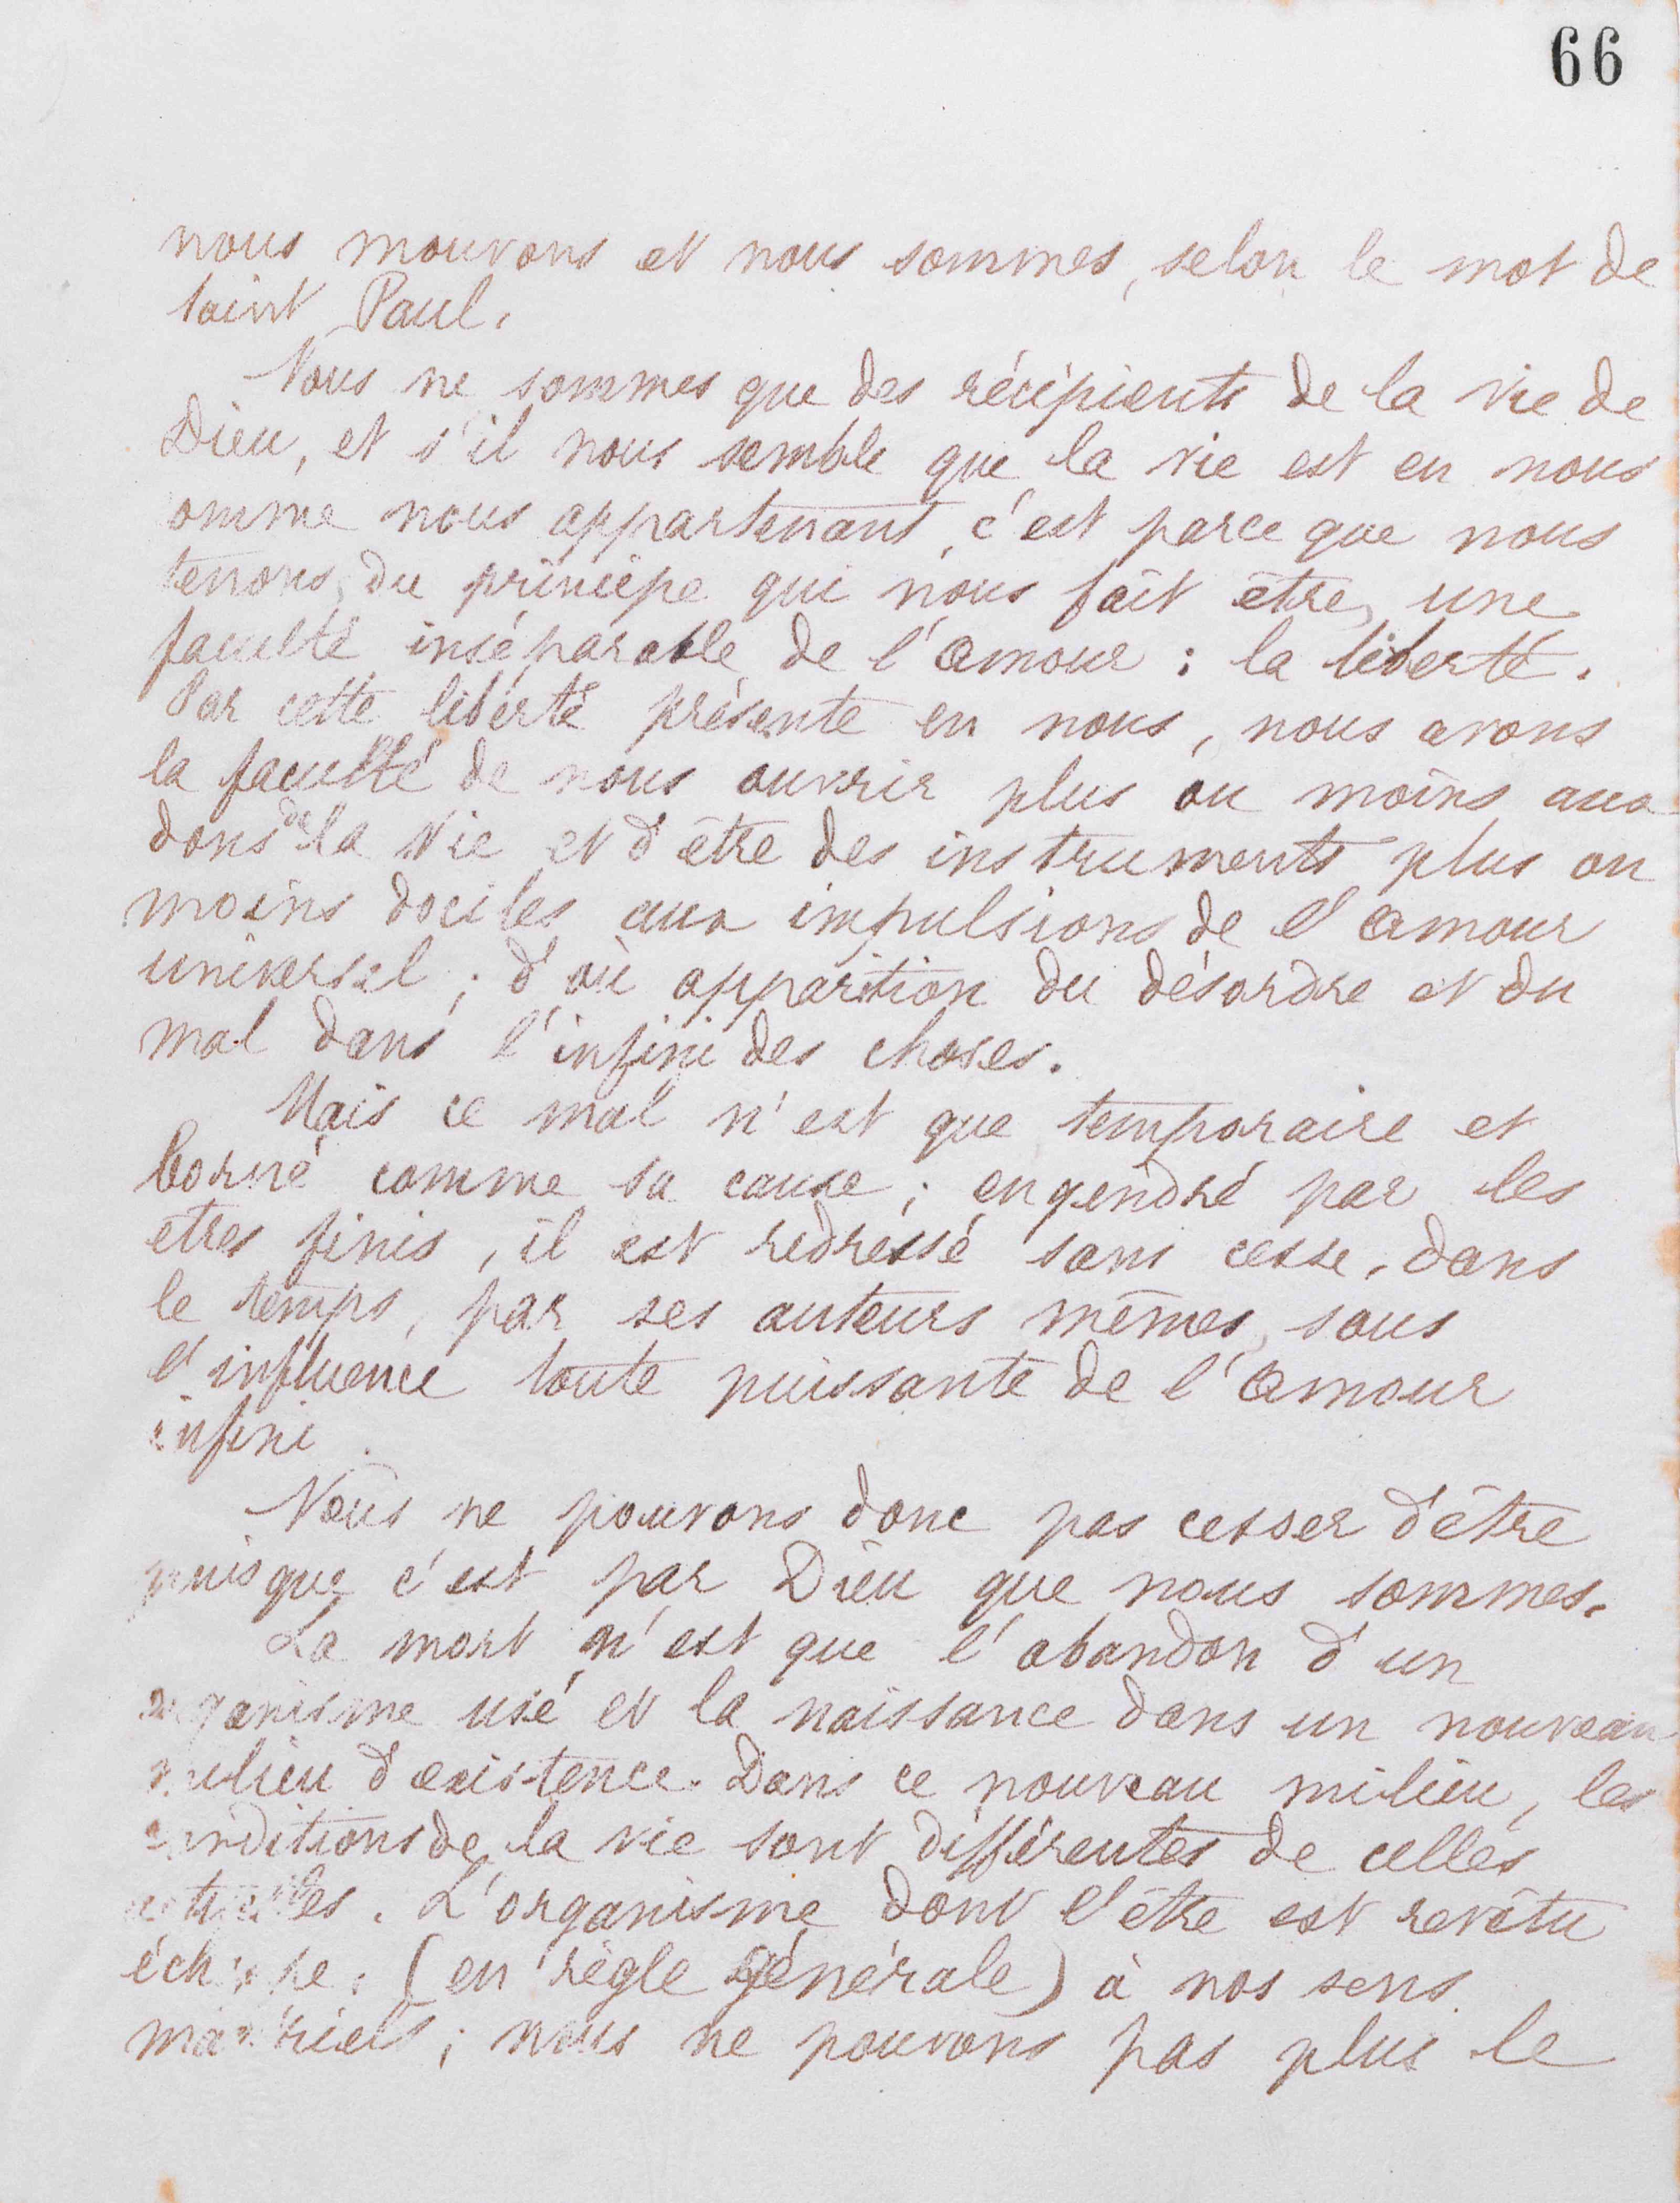 66
nous mouvons et nous sommes, selon le mot de
saint Paul.
Nous ne sommes que des récipients de la vie de
Dieu, et s'il nous semble que la vie est en nous
omme nous appartenant, c'est parce que nous
tenons, du principe qui nous fait être, une
faculté inséparable de l'amour : la liberté.
Par cette liberté présente en nous, nous avons
la faculté de nous ouvrir plus ou moins aux
dons de la vie et d'être des instruments plus ou
moins dociles aux impulsions de l'amour
universel ; d'où apparition du désordre et du
mal dans l'infini des choses.
Mais ce mal n'est que temporaire et
borné comme sa cause ; engendré par les
êtres finis, il est redressé sans cesse, dans
le temps, par ses auteurs mêmes, sous
l'influence toute puissante de l'amour
infini.
Nous ne pouvons donc pas cesser d'être
puisque c'est par Dieu que nous sommes.
La mort n'est que l'abandon d'un
organisme usé et la naissance dans un nouveau
milieu d'existence. Dans ce nouveau milieu, les
conditions de la vie sont différentes de celles
actuelles. L'organisme dont l'être est revêtu
échappe, (en règle générale) à nos sens
matériels ; nous ne pouvons pas plus le